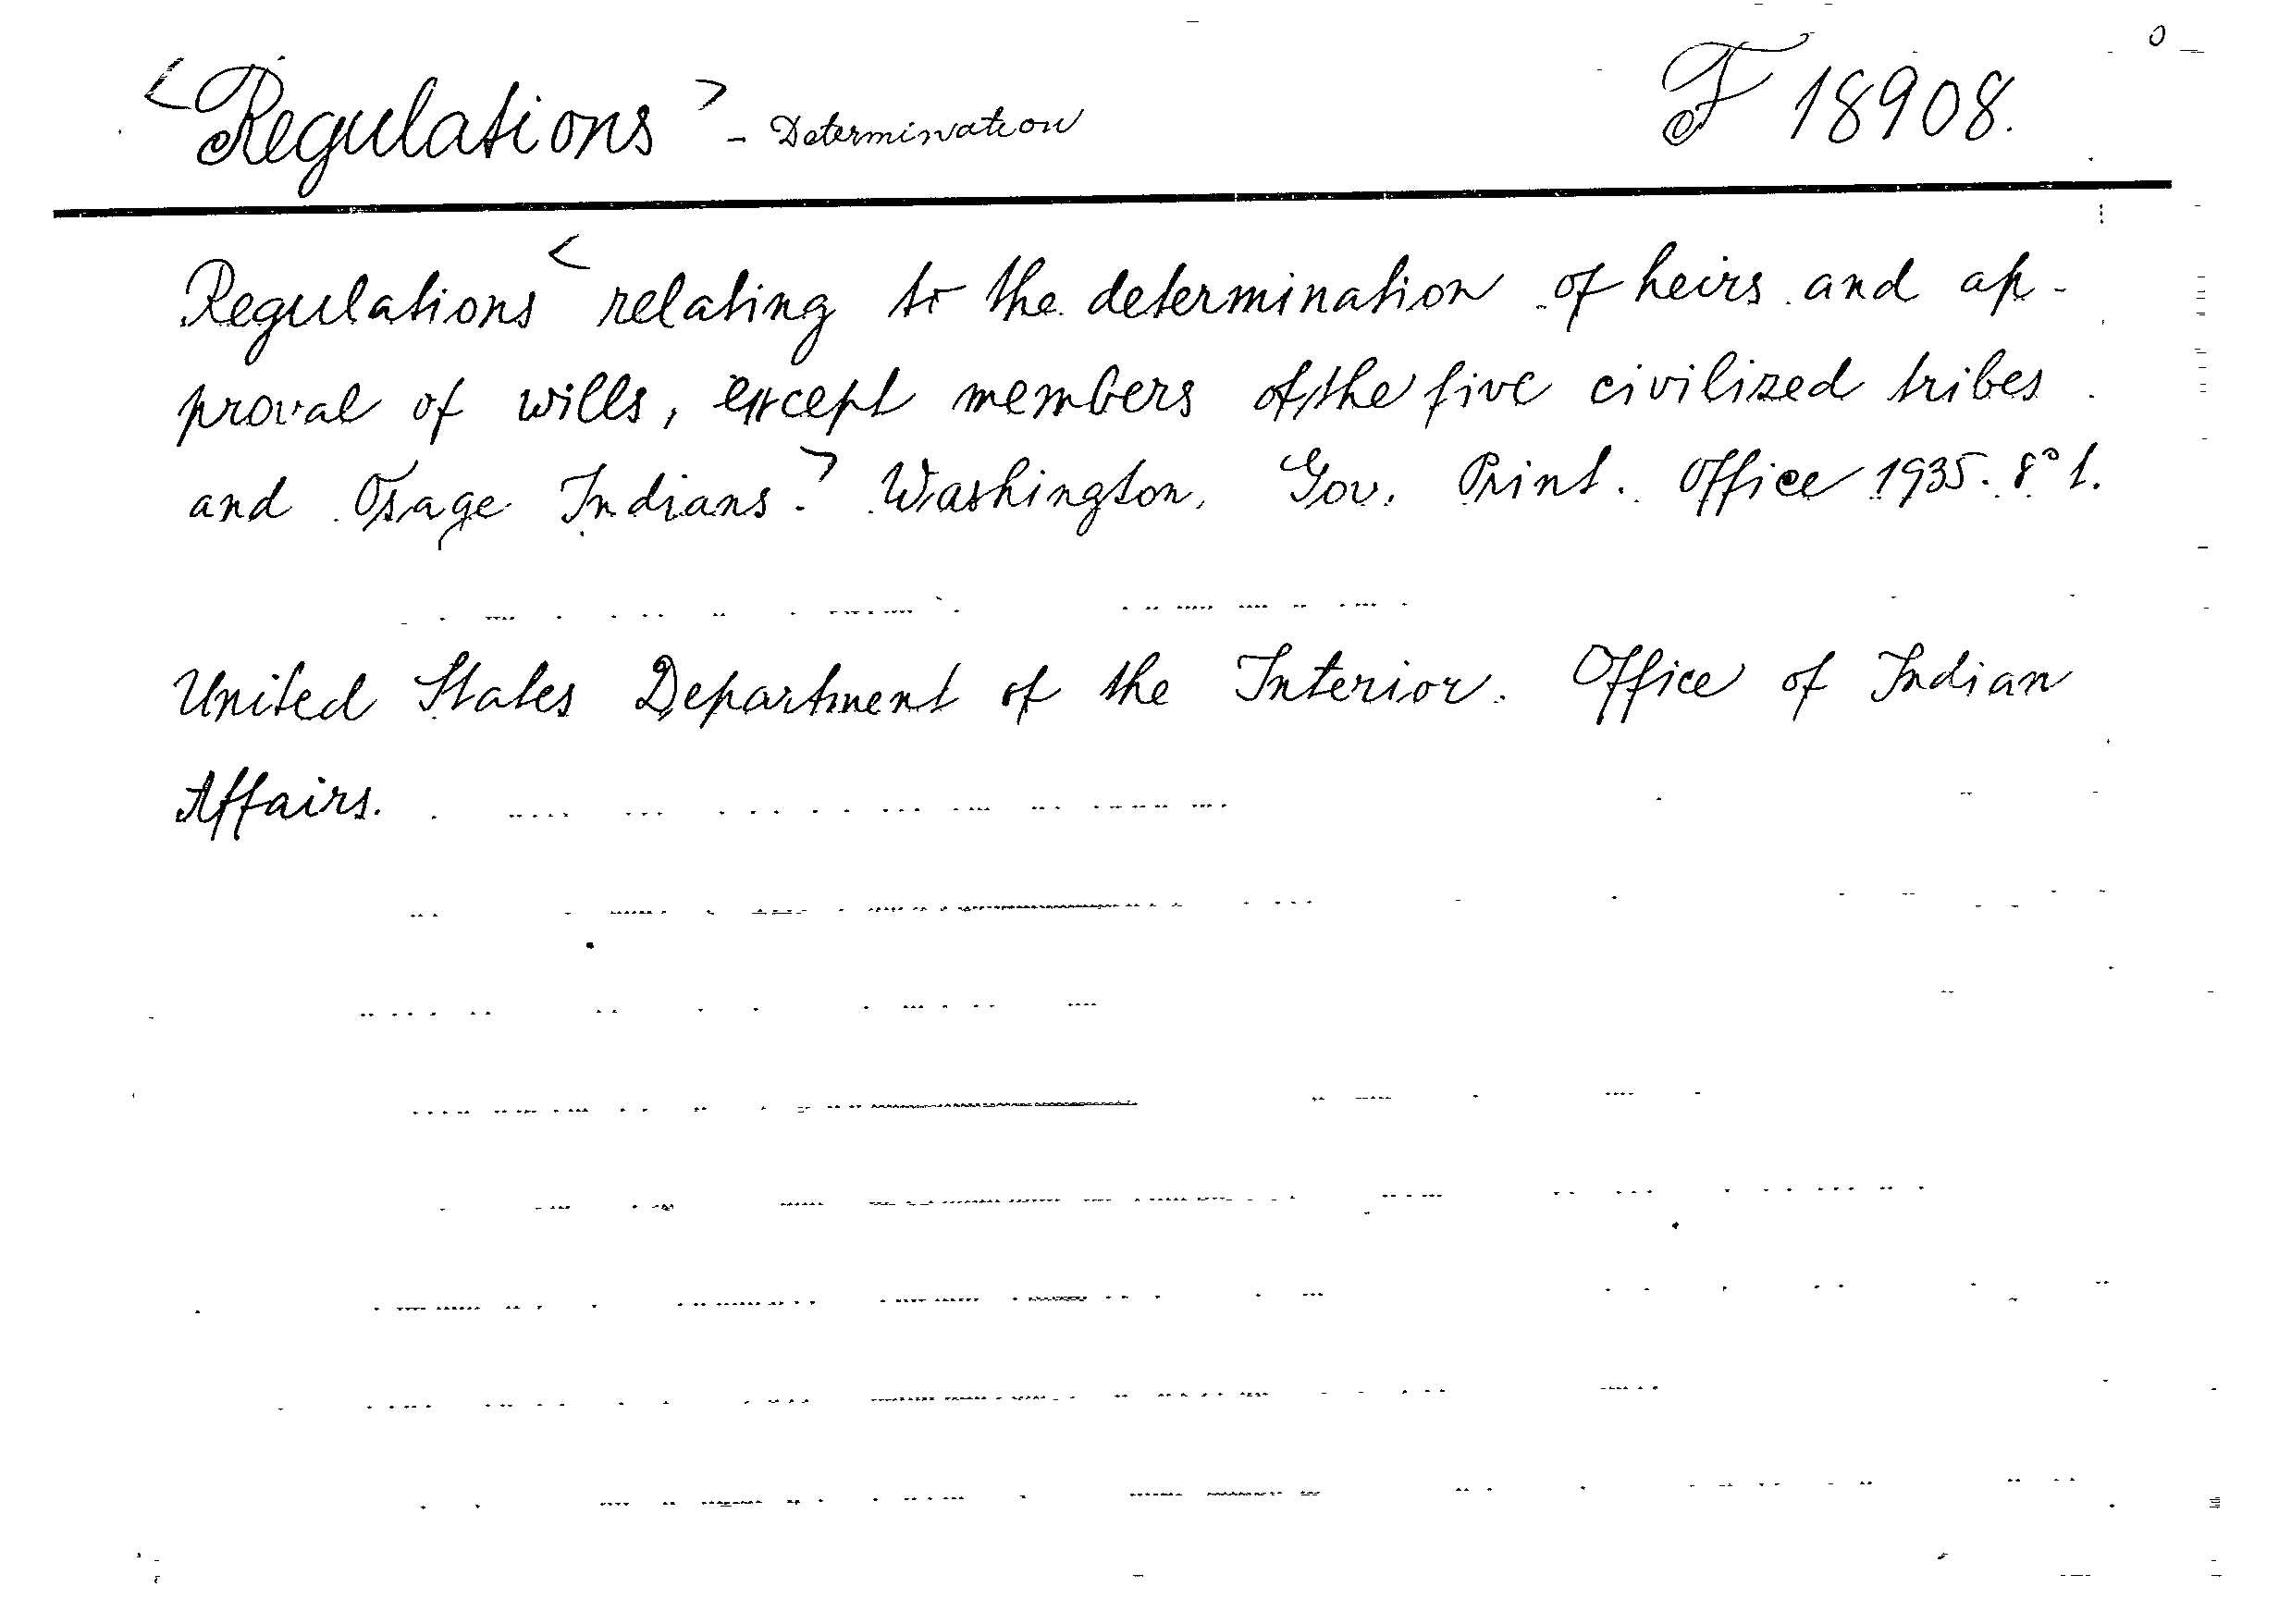 <Regulations> - Determination F 18908.
Regulations < relating to the determination of heirs and ap-
proval of wills, except members of the five civilized tribes
and Osage Indians.> Washington, Gov. Print. Office 1935. 8° 1.
United States Department of the Interior. Office of Indian
Affairs.